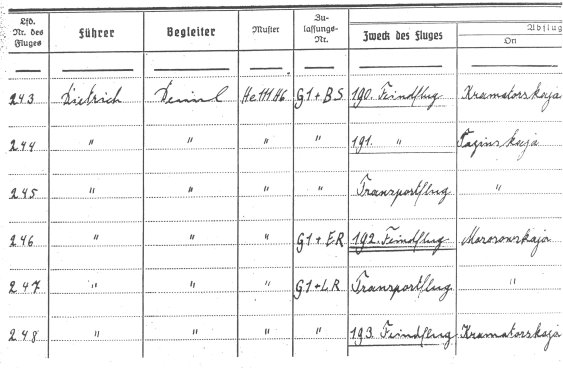 Lfd. Nr. des Fluges Führer Begleiter Muster Zulassungs-Nr. Zweck des Fluges Abflug Ort
243 Dietrich He111H6 G1+BS 190. Feindflug Kramatorskaja
244 " " " " 191. " Tazinskaja
245 " " " " Transportflug "
246 " " " G1+ER 192. Feindflug Morosowskaja
247 " " " G1+LR Transportflug "
248 " " " " 193. Feindflug Kramatorskaja